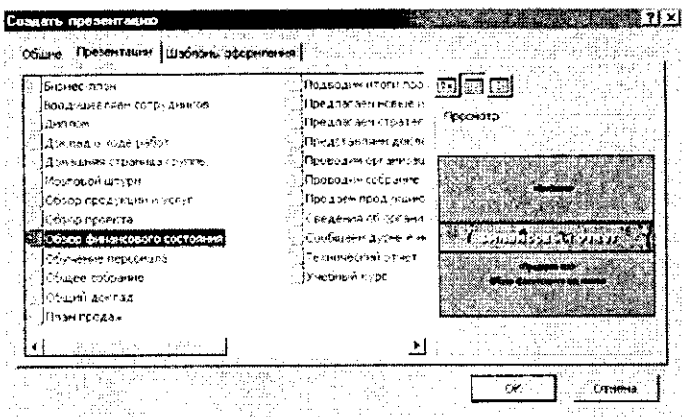 Создать презентацию
Общие Презентации Шаблоны оформления
Бизнес-план
Воодушевляем сотрудников
Диплом
Доклад о ходе работ
Домашняя страница группы
Мозговой штурм
Обзор продукции и услуг
Обзор проекта
Обзор финансового состояния
Обучение персонала
Общее собрание
Общий доклад
План продаж
Подводим итоги про
Предлагаем новые и
Предлагаем стратег
Представляем докла
Проводим организац
Проводим собрание
Продаем продукцию
Сведения об органи
Сообщаем дурные н
Технический отчет
Учебный курс
Просмотр
OK
Отмена